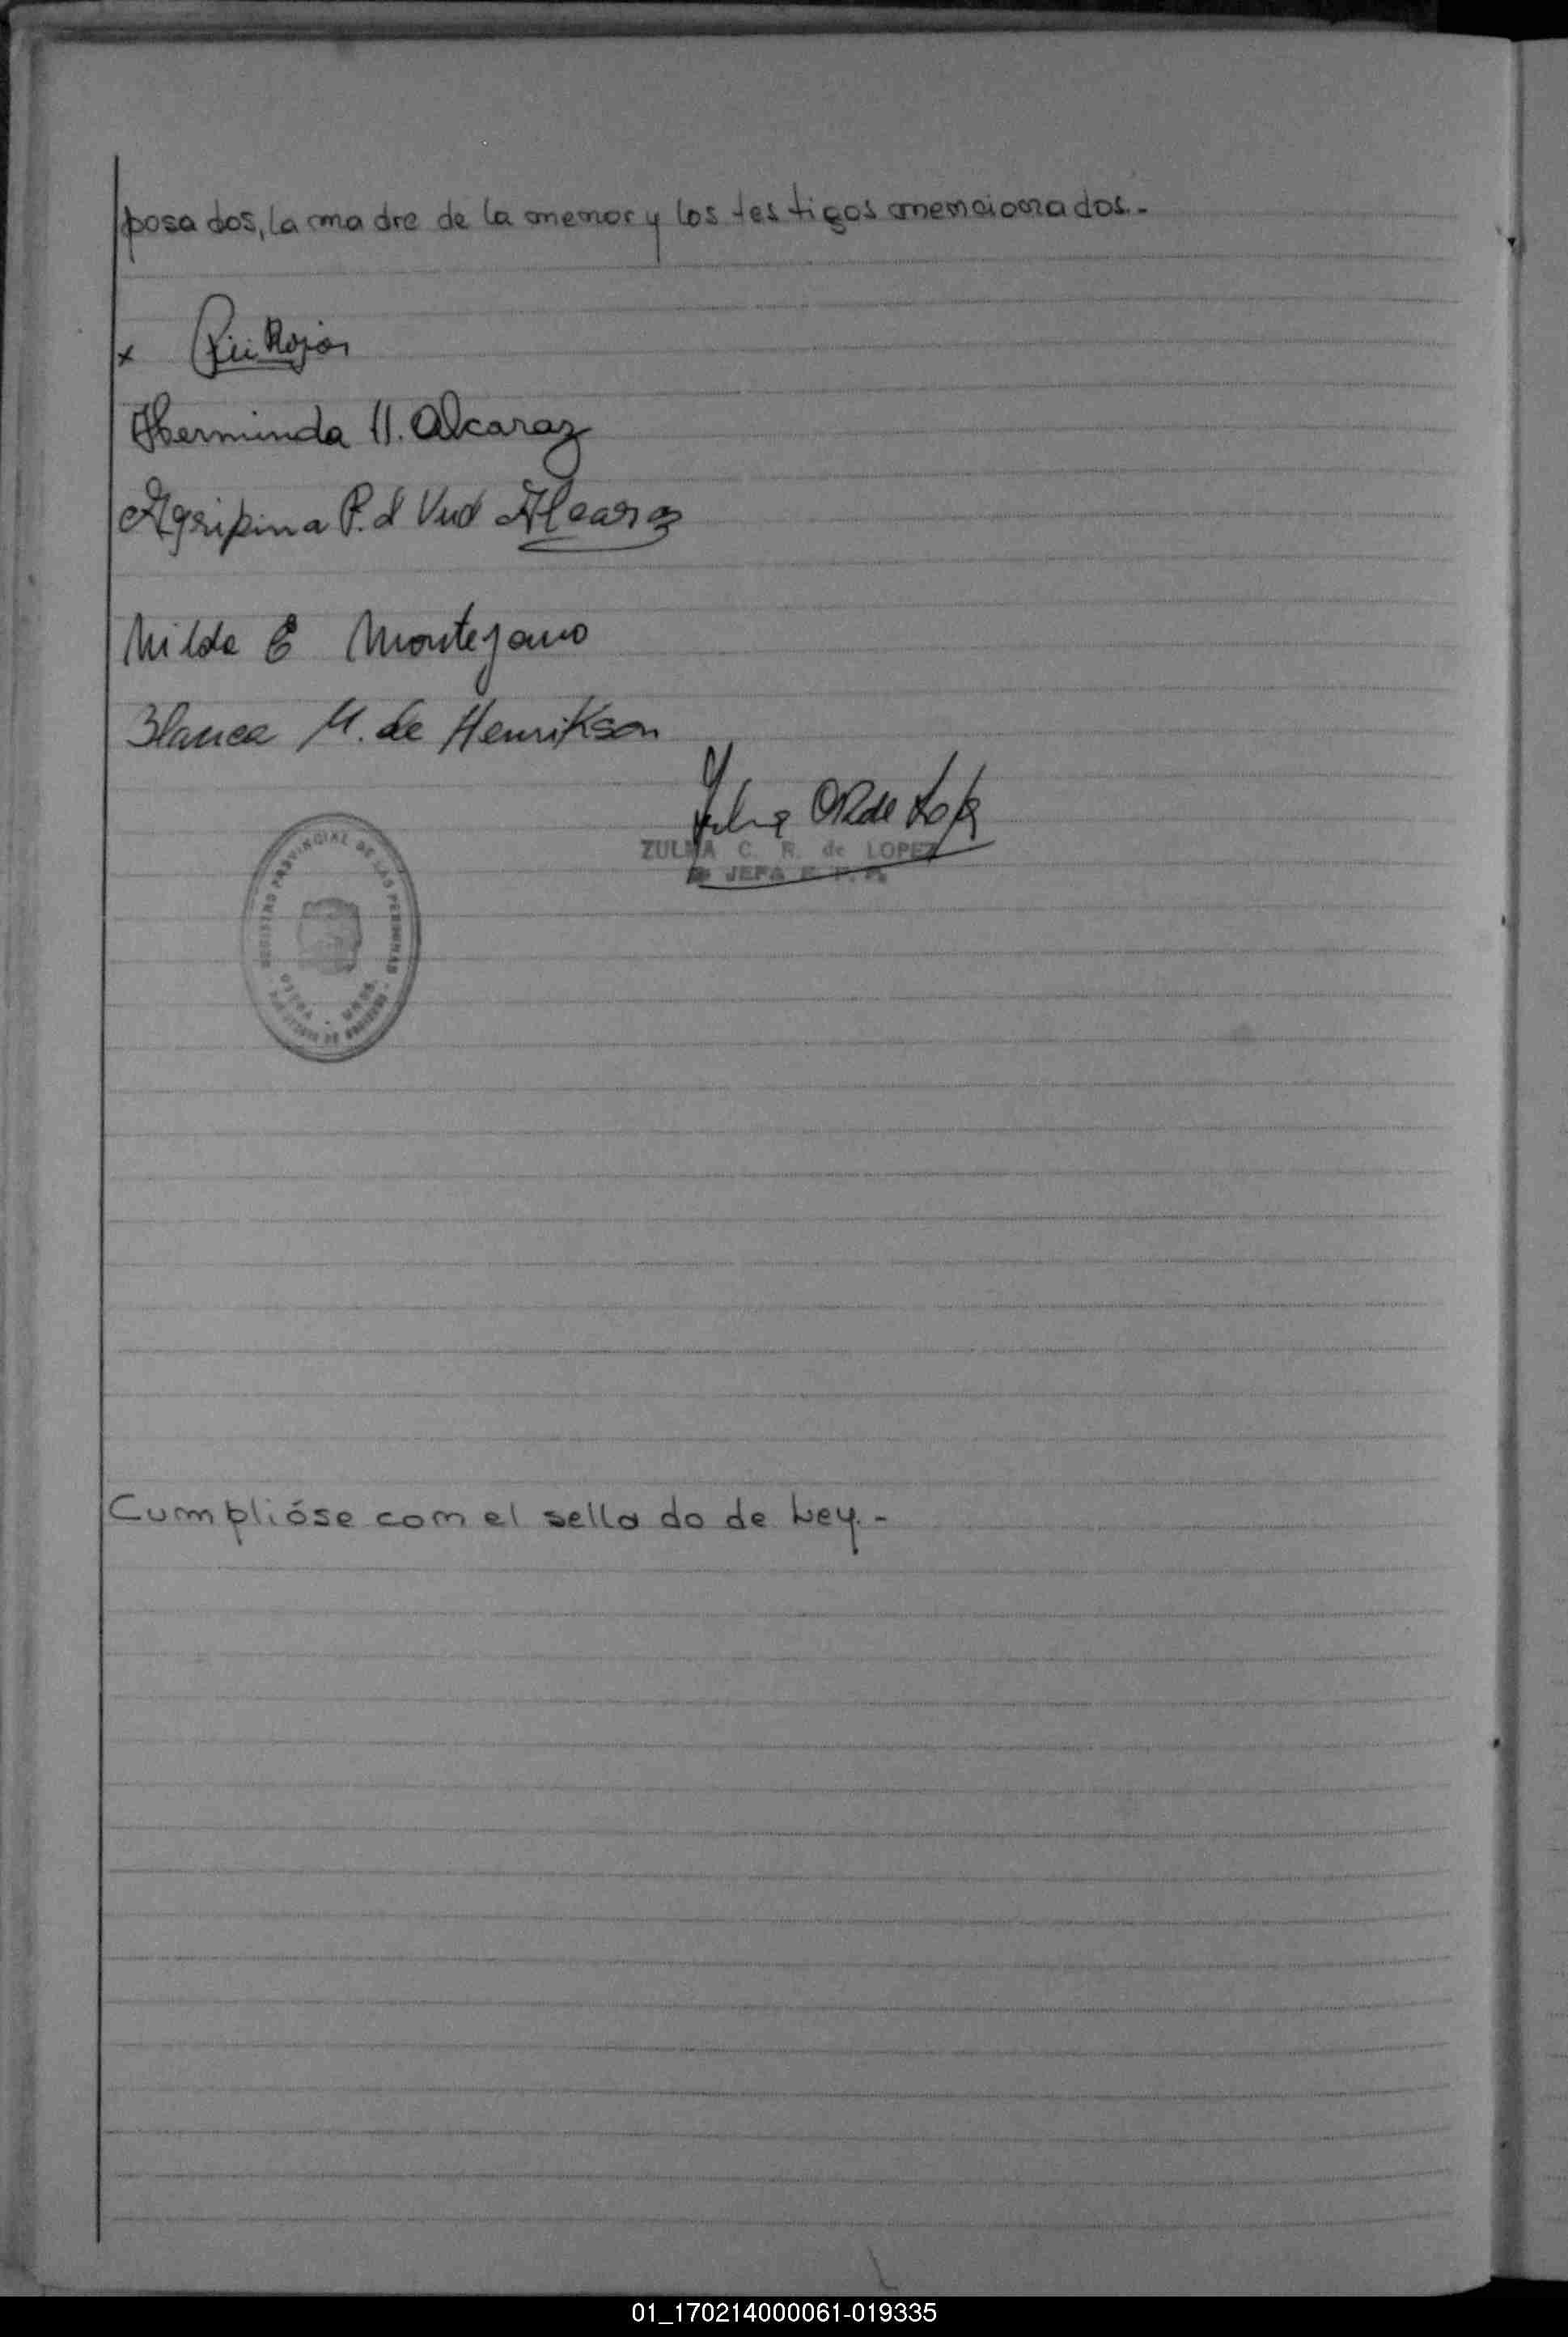 posados, la madre de la menor y los testigos mencionados.-
x Rojas
Herminda H. Alcaraz
Agripina P. d Vud Alcaraz
Nilda E Montejano
Blanca M. de Henrikson
Zulma C R de Lopez
ZULMA C. R. de LOPEZ
JEFA
REGISTRO PROVINCIAL DE LAS PERSONAS
Cumplióse con el sellado de Ley.-
01_170214000061-019335